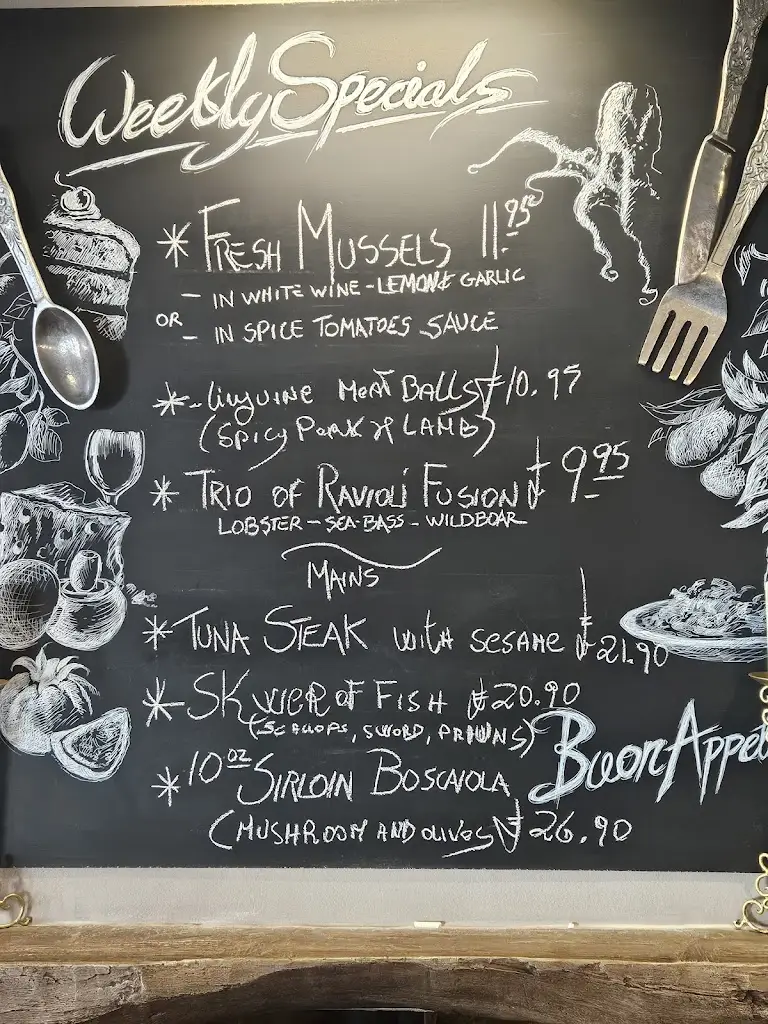 Weekly Specials
* FRESH MUSSELS 11.95
- IN WHITE WINE - LEMON & GARLIC
OR - IN SPICE TOMATOES SAUCE
* - linguine MEAT BALLS £10.95
(SPICY PORK & LAMB)
* TRIO OF RAVIOLI FUSION £ 9.95
LOBSTER - SEA-BASS - WILDBOAR
MAINS
* TUNA STEAK WITH SESAME £21.90
* SKWER OF FISH £20.90
(SCALLOPS, SWORD, PRAWNS)
Buon Appet
* 10oz SIRLOIN BOSCAIOLA
(MUSHROOM AND OLIVES) £26.90